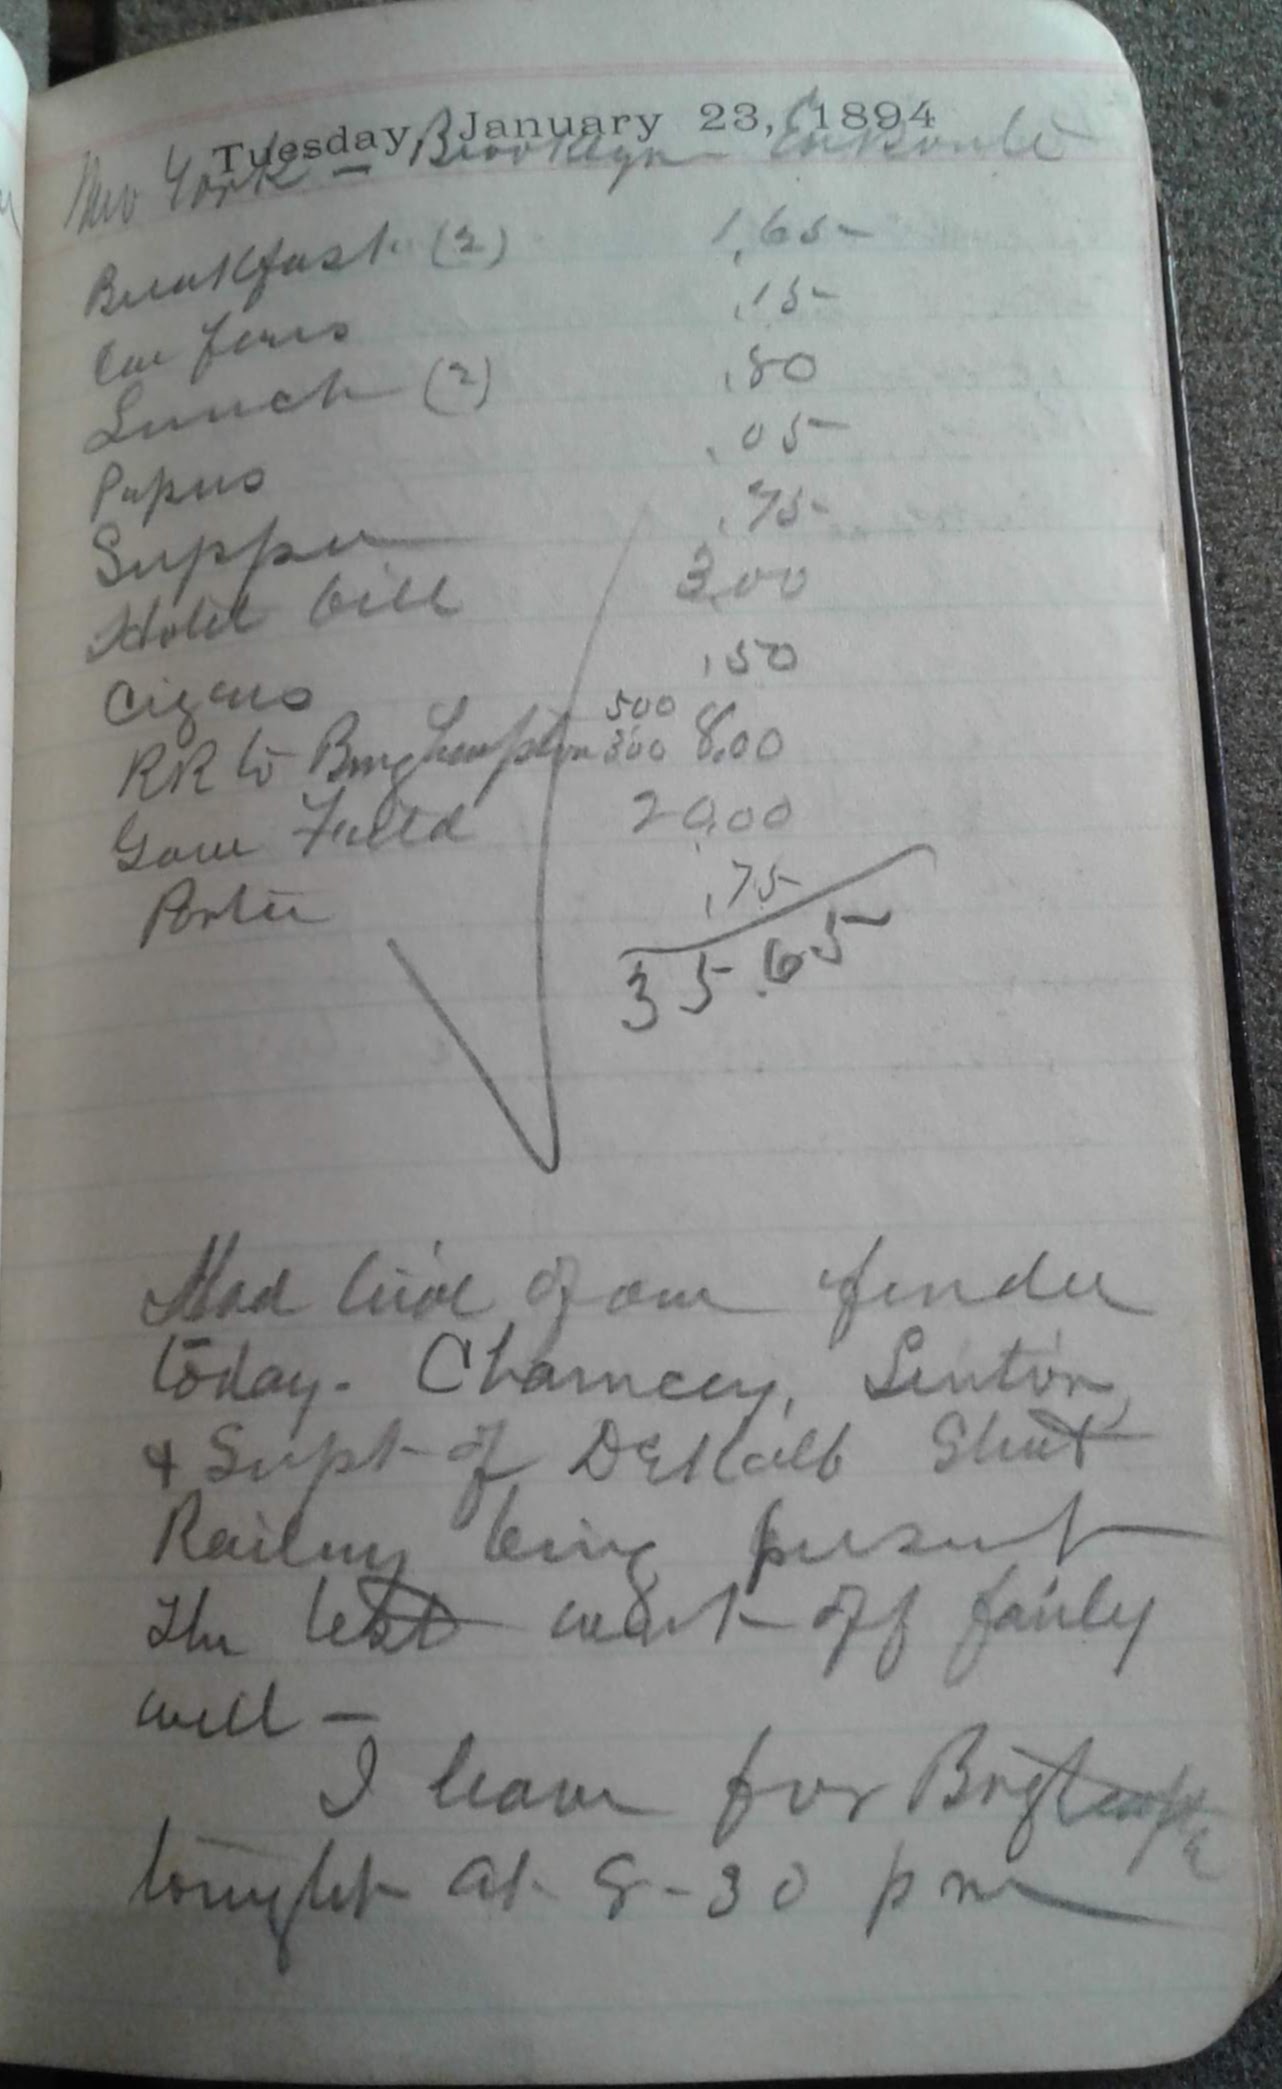 Tuesday, January 23, 1894
New York - Brooklyn - Enroute
Breakfast (2) 1.65
Car fares .15
Lunch (2) .80
Papers .05
Supper .75
Hotel bill 3.00
Cigars .50
500
RR to Binghampton 300 8.00
Gave Field 20.00
Porter .75
35.65
Had trial of our fender
today. Chauncey, Linton,
& Supt of DeKalb Street
Railway being present
The test went off fairly
well -
I leave for
tonight at 8-30 pm